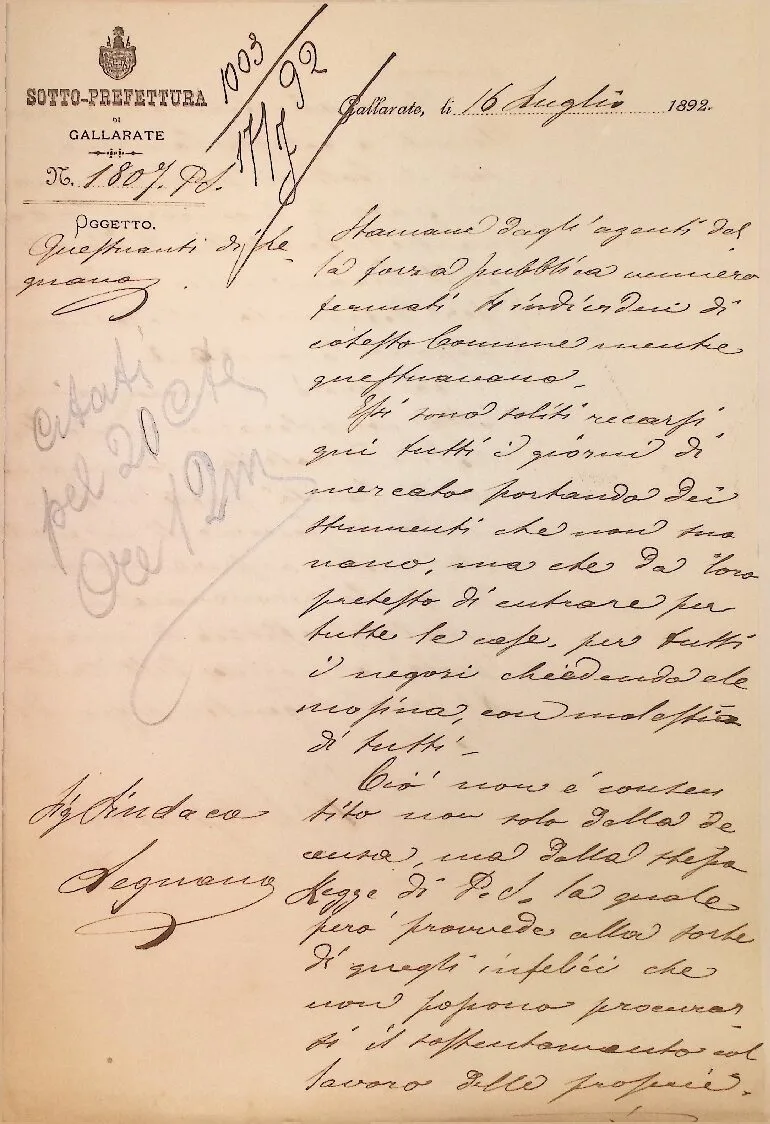 SOTTO-PREFETTURA
DI
GALLARATE
N. 1807. P.S.
1003
17/7 92
Gallarate, li 16 Luglio 1892.
OGGETTO.
Questuanti di Le-
gnano
citati
pel 20 Cte
Ore 12m
Stamane dagli agenti del
la forza pubblica vennero
fermati tre individui di
cotesto Comune mentre
questuavano.
Essi sono soliti recarsi
qui tutti i giorni di
mercato portando dei
strumenti che non suo
nano, ma che da loro
pretesto di entrare per
tutte le case, per tutti
i negozi chiedendo ele
mosina, con molestia
di tutti.
Ciò non è consen
tito non solo dalla de
cenza, ma dalla stessa
Legge di P.S. la quale
però provvede alla sorte
di quegli infelici che
non possono procurar
si il sostentamento col
lavoro delle proprie
Sig Sindaco
Legnano